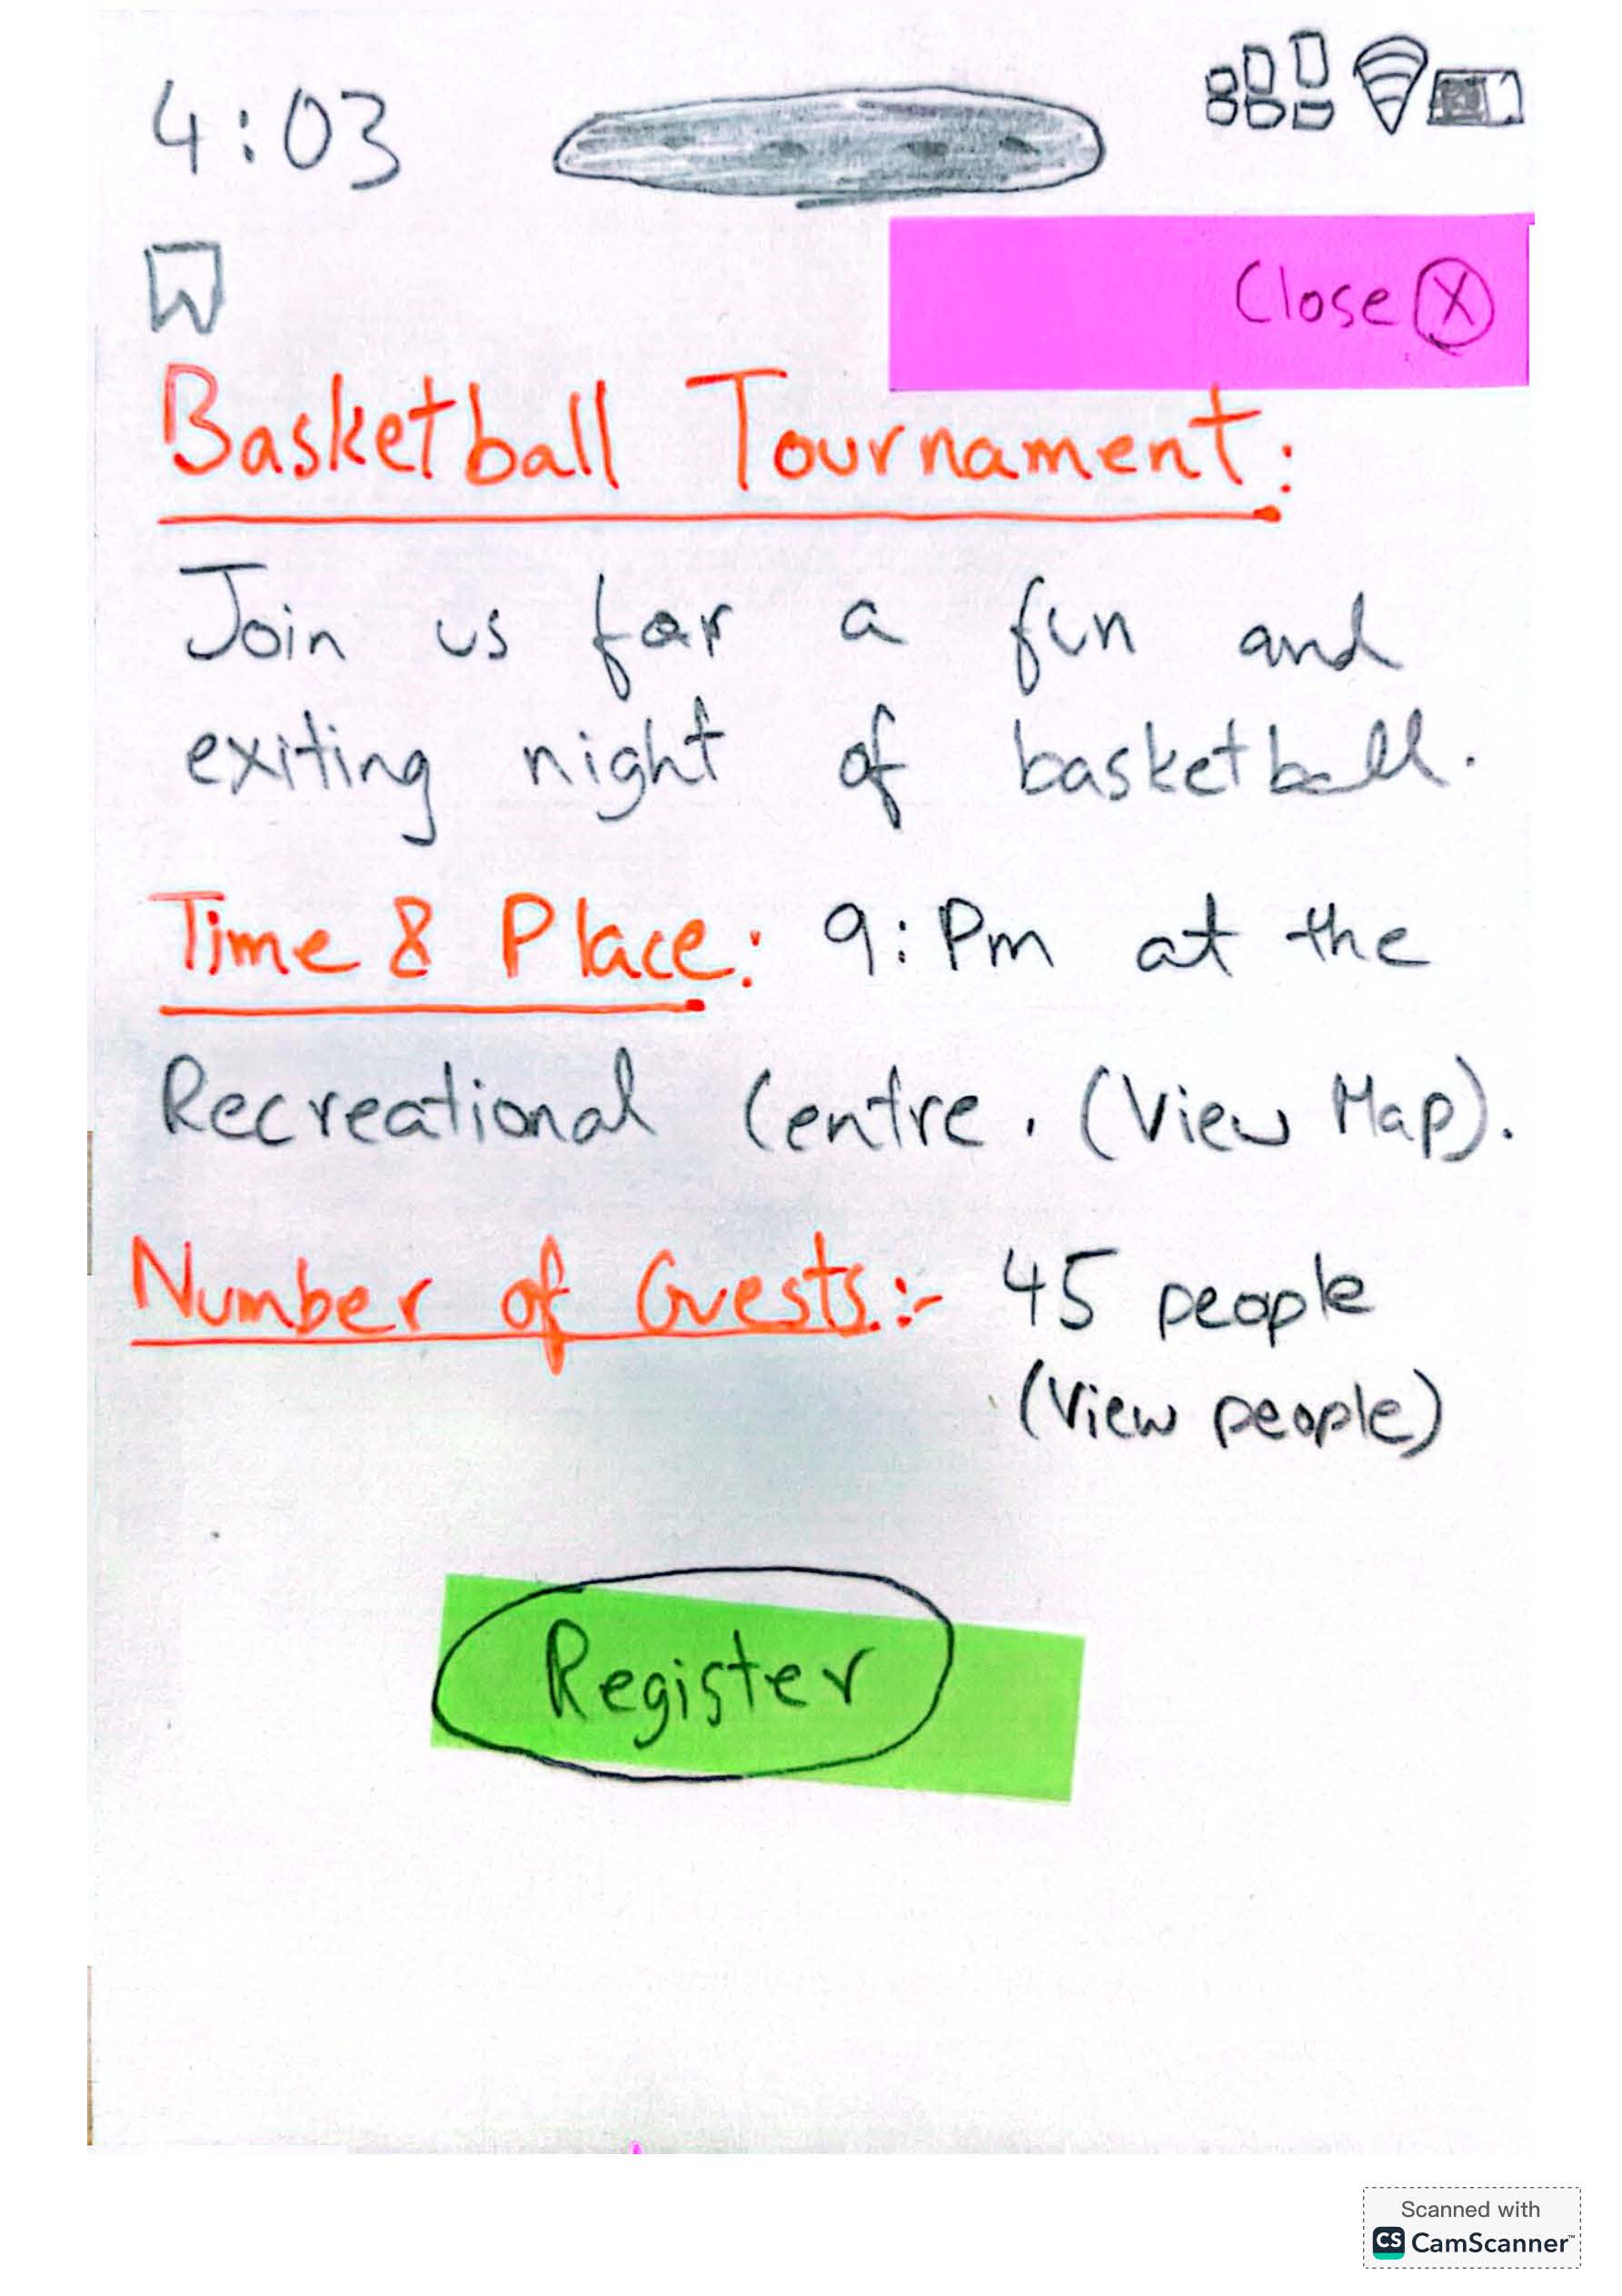 4:03
Close X
Basketball Tournament:
Join us for a fun and
exiting night of basketball.
Time & Place: 9:Pm at the
Recreational Centre. (View Map).
Number of Guests:- 45 people
(View people)
Register
Scanned with
CS CamScanner™